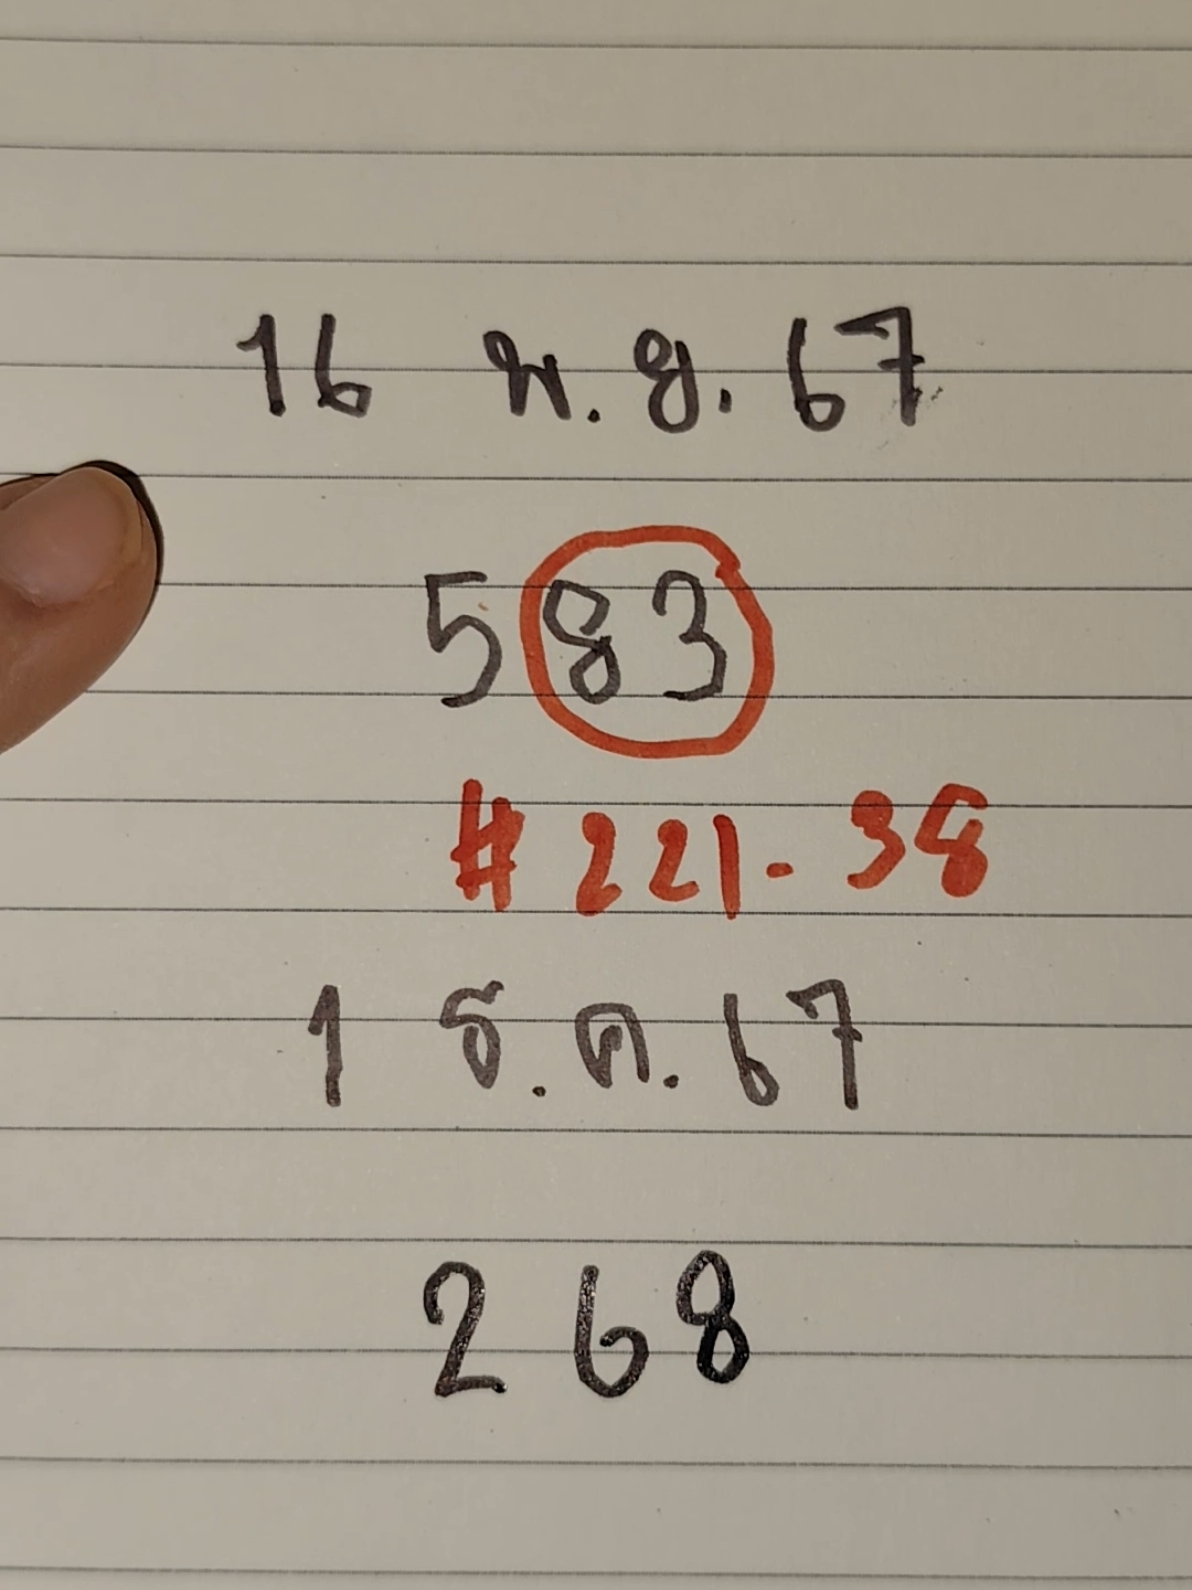 16 พ.ย. 67
583
#221-38
1 ธ.ค. 67
268